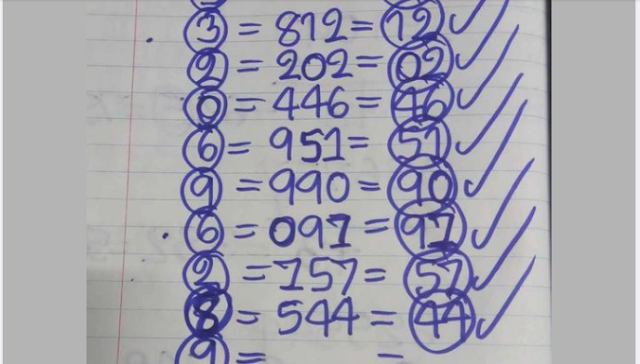 3 = 812 = 12
2 = 202 = 02
0 = 446 = 46
6 = 951 = 51
9 = 990 = 90
6 = 091 = 91
2 = 157 = 57
8 = 544 = 44
9 = =